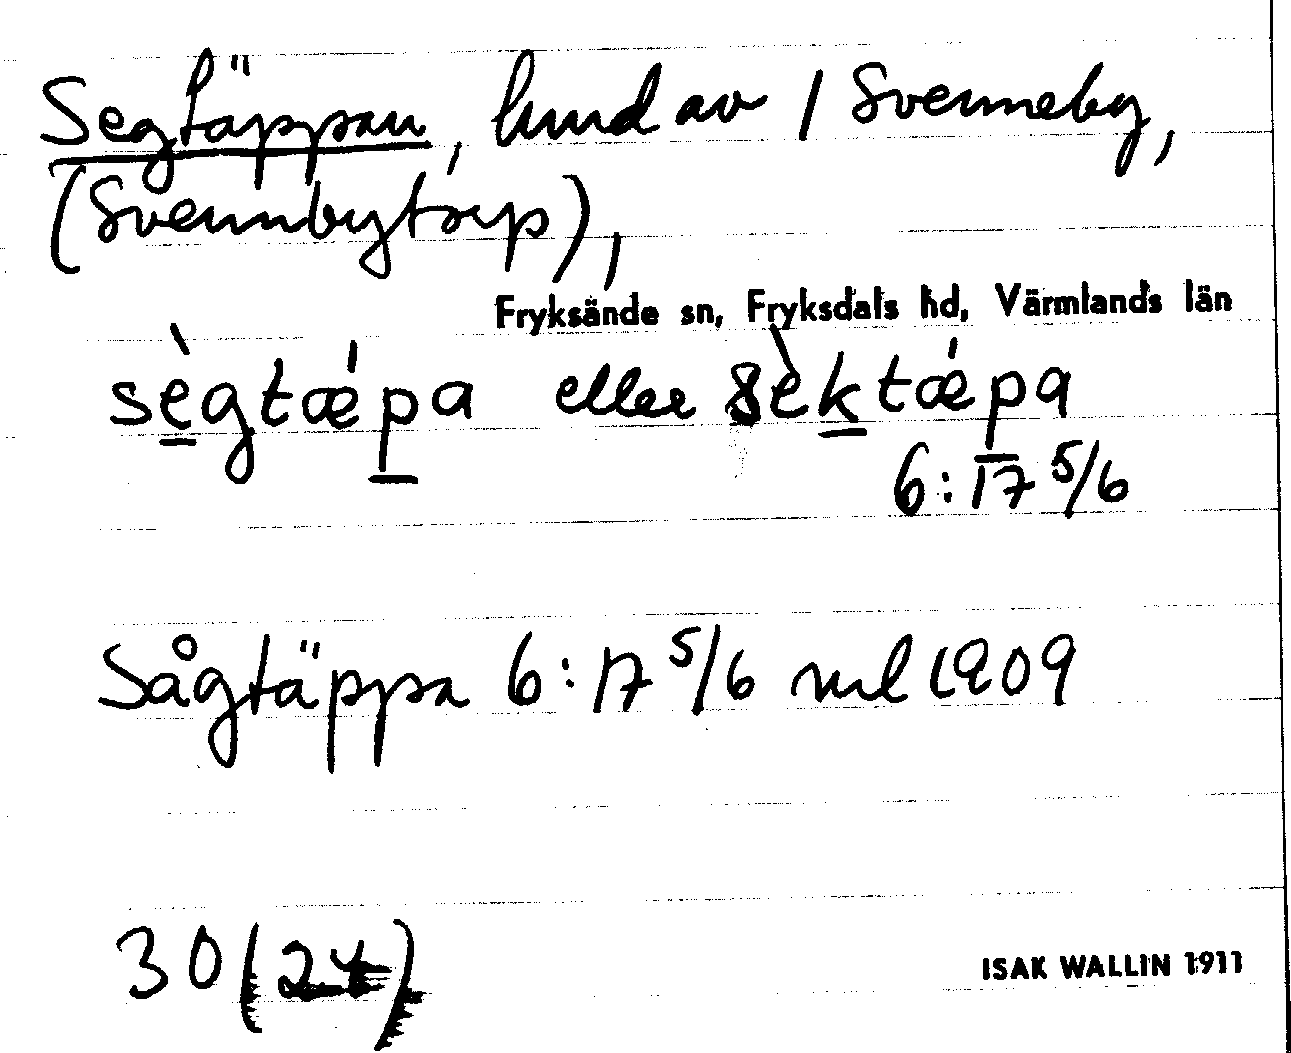 Segtäppan, hmd av 1 Svenneby,
(Svennbytorp),
Fryksände sn, Fryksdals hd, Värmlands län
sègtǽpa eller sèktǽpa
6:17 5/6
Sågtäppa 6:17 5/6 ml 1909
30 (24)
ISAK WALLIN 1911